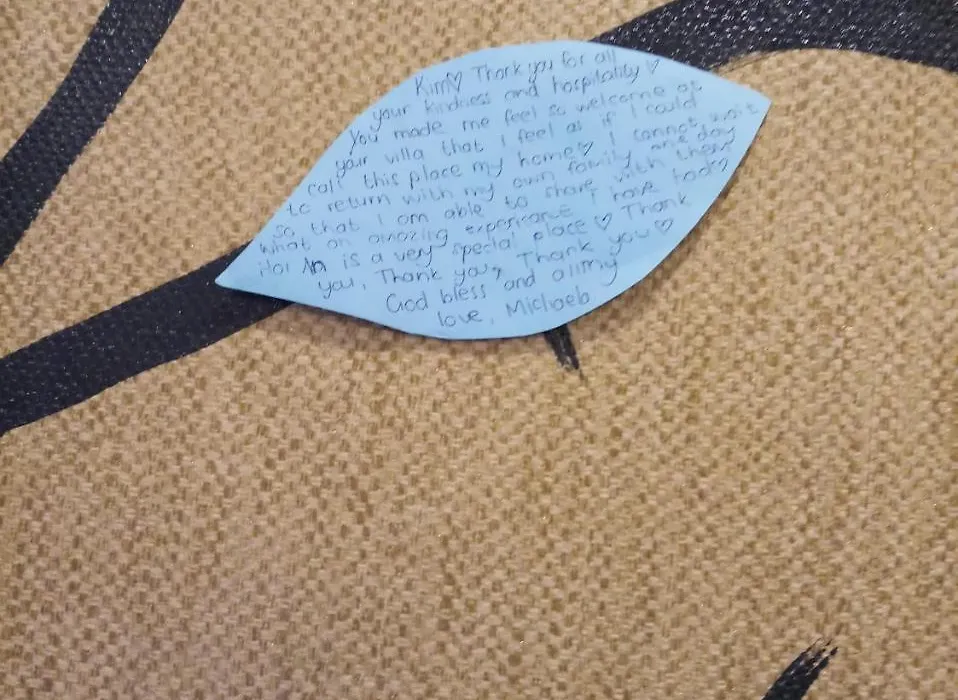 Kim♡ Thank you for all
your kindness and hospitality ♡
You made me feel so welcome at
your villa that I feel as if I could
call this place my home♡ I cannot wait
to return with my own family one day
so that I am able to share with them
what an amazing experience I have had♡
Hoi An is a very special place ♡ Thank
you, Thank you, Thank you ♡
God bless and all my
love,